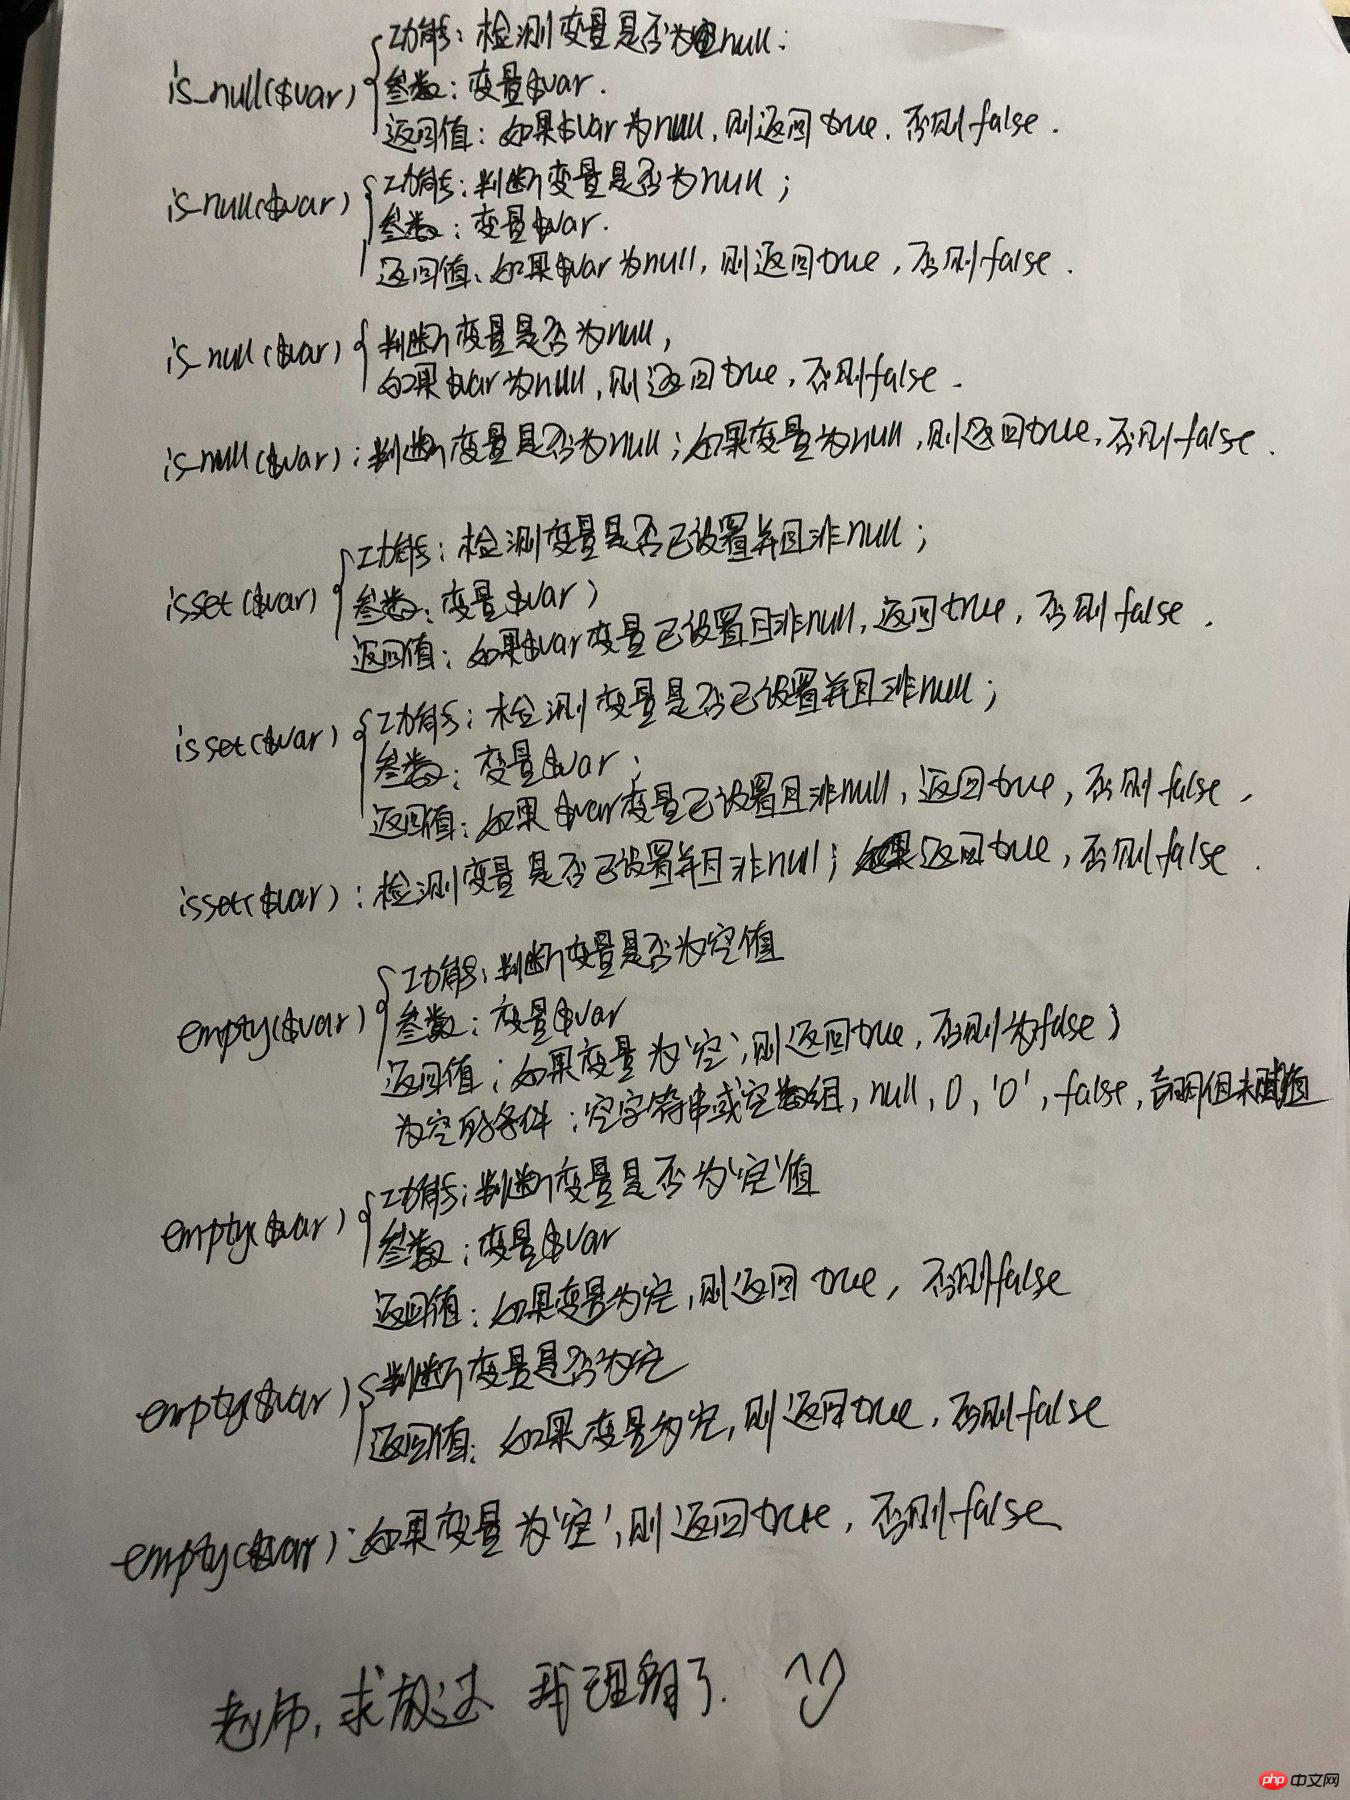 功能：检测变量是否为null；
is_null($var)
参数：变量$var.
返回值：如果$var为null，则返回true，否则false.
功能：判断变量是否为null；
is_null($var)
参数：变量$var.
返回值：如果$var为null，则返回true，否则false.
is_null($var) 判断变量是否为null，
如果$var为null，则返回true，否则false.
is_null($var)：判断变量是否为null；如果变量为null，则返回true，否则false.
功能：检测变量是否已设置并且非null；
isset($var)
参数：变量$var；
返回值：如果$var变量已设置且非null，返回true，否则false.
功能：检测变量是否已设置并且非null；
isset($var)
参数：变量$var；
返回值：如果$var变量已设置且非null，返回true，否则false，
isset($var)：检测变量是否已设置并且非null；返回true，否则false.
功能：判断变量是否为空值
empty($var)
参数：变量$var
返回值：如果变量为'空'，则返回true，否则为false；
为空的条件：空字符串或空数组，null，0，'0'，false，声明但未赋值
功能：判断变量是否为'空'值
empty($var)
参数：变量$var
返回值：如果变量为空，则返回true，否则false
empty($var) 判断变量是否为空
返回值：如果变量为空，则返回true，否则false
empty($var)：如果变量为'空'，则返回true，否则false
老师，求放过 我理解了.
php 中文网